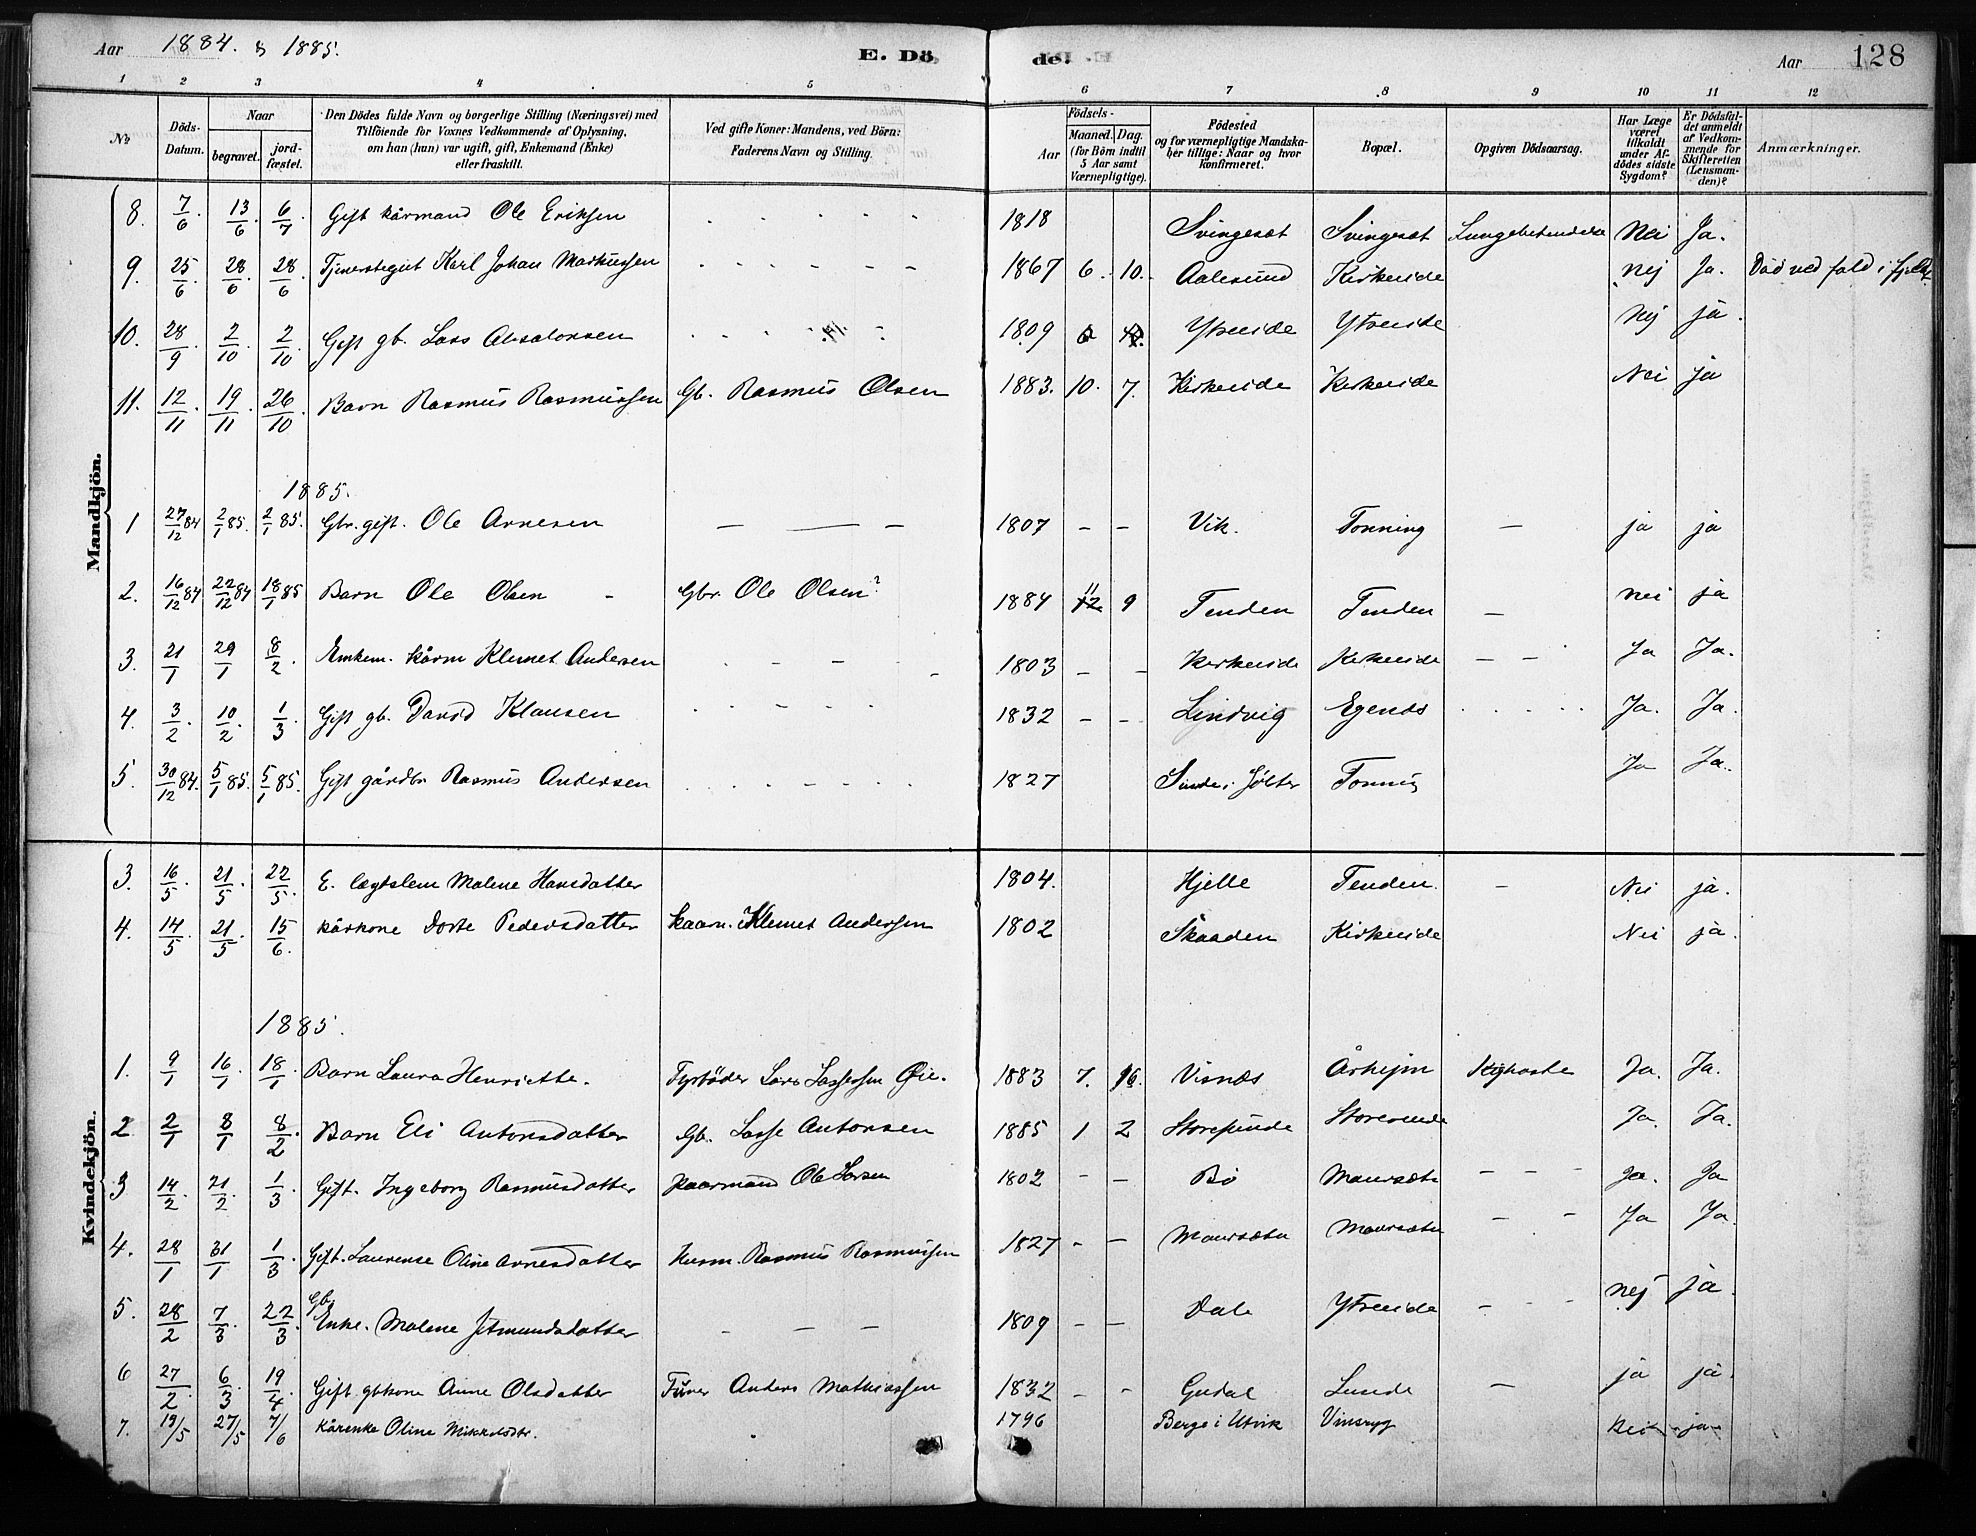 Aar 1884. & 1885. E. Dö de. Aar 128
1 2 3 4 5 6 7 8 9 10 11 12
№ Döds-Datum. Naar begravet. jord-fæstet. Den Dödes fulde Navn og borgerlige Stilling (Næringsvei) med Tilföiende for Voxnes Vedkommende af Oplysning, om han (hun) var ugift, gift, Enkemand (Enke) eller fraskilt. Ved gifte Koner: Mandens, ved Börn: Faderens Navn og Stilling. Födsels- Aar Maaned. Dag. (for Börn indtil 5 Aar samt Værnepligtige). Födested og for værnepligtige Mandskaber tillige: Naar og hvor konfirmeret. Bopæl. Opgiven Dödsaarsag. Har Læge været tilkaldt under Afdödes sidste Sygdom? Er Dödsfaldet anmeldt af Vedkommende for Skifteretten (Lensmanden)? Anmærkninger.
Mandkjön.
8. 7/6. 13/6. 6/7 Gift kårmand Ole Eriksen 1818 Svingesæt Svingesæt Lungebetendelse Nei Ja.
9. 25/6. 28/6 28/6 Tjenestegut Karl Johan Markussen 1867 6. 10. Aalesund Kirkeide nej Ja. Död ved fald i fjeldet
10. 28/9 2/10 2/10 Gift gb. Lars Absalonsen 1809 Ytreeide Ytreeide Nej ja.
11. 12/11. 19/11. 26/10 Barn Rasmus Rasmussen Gb. Rasmus Olsen 1883. 10. 7. Kirkeeide Kirkeeide Nei ja
1885.
1 27/12 84 2/1 85. 2/1 85. Gbr. gift. Ole Arnesen — — — 1807 – – Vik. Tonning – ja ja
2. 16/12 84 22/12 84 18/1 85 Barn Ole Olsen Gbr. Ole Olsen? 1884 11 12 9 Tenden Tenden – nei ja
3. 21/1 29/1 8/2. Enkem. kårm Klemet Andersen 1803 – – Kirkeeide Kirkeeide – – Ja Ja.
4. 3/2. 10/2. 1/3. Gift gb. David Klausen 1832 – – Lindvig Egends Ja. Ja.
5. 30/12 84. 5/1 85. 5/1 85. Gift gårdbr Rasmus Andersen 1827 Sunde i Jölster Tonning Ja Ja.
Kvindekjön.
3. 16/5. 21/5. 22/5. E. lægtslem Malene Hansdatter 1804. Hjelle Tenden. – Nei ja.
4. 14/5. 21/5. 15/6. kårkone Dorte Pedersdatter kaarm. Klemet Andersen 1802 Skaaden Kirkeeide Nei ja.
1885.
1. 9/1 16/1 18/1. Barn Laura Henriette. Lars Lassesen Øie. 1883 7. 16. Visnæs Årheim Kighoste Ja. Ja.
2 2/1 8/1 8/2. Barn Eli Antonsdatter Gb. Lasse Antonsen 1885 1 2 Storesunde Storesunde Ja. Ja.
3 14/2. 21/2. 1/3. Gift. Ingeborg Rasmusdatter kaarmand Ole Larsen 1802 – – Bö Maursæte – – – Ja. Ja
4. 28/1 31/1 1/3. Gift. Laurense Oline Arnesdatter Husm. Rasmus Rasmussen 1827 – – Maursæte Maursæte – – Ja Ja.
5. 28/2 7/3. 22/3. Gb Enke. Malene Jetmundsdatter – – – 1809 – – Dale Ytreeide – – – nej ja.
6 27/2. 6/3 19/4. Gift gbkone Anne Olsdatter Anders Mathiassen 1832 – – Gudal Lunde – ja ja.
7. 19/5 27/5 7/6 Kårenke Oline Mikkelsdtr. 1796 Berge i Utvik Vinsryg Nei ja